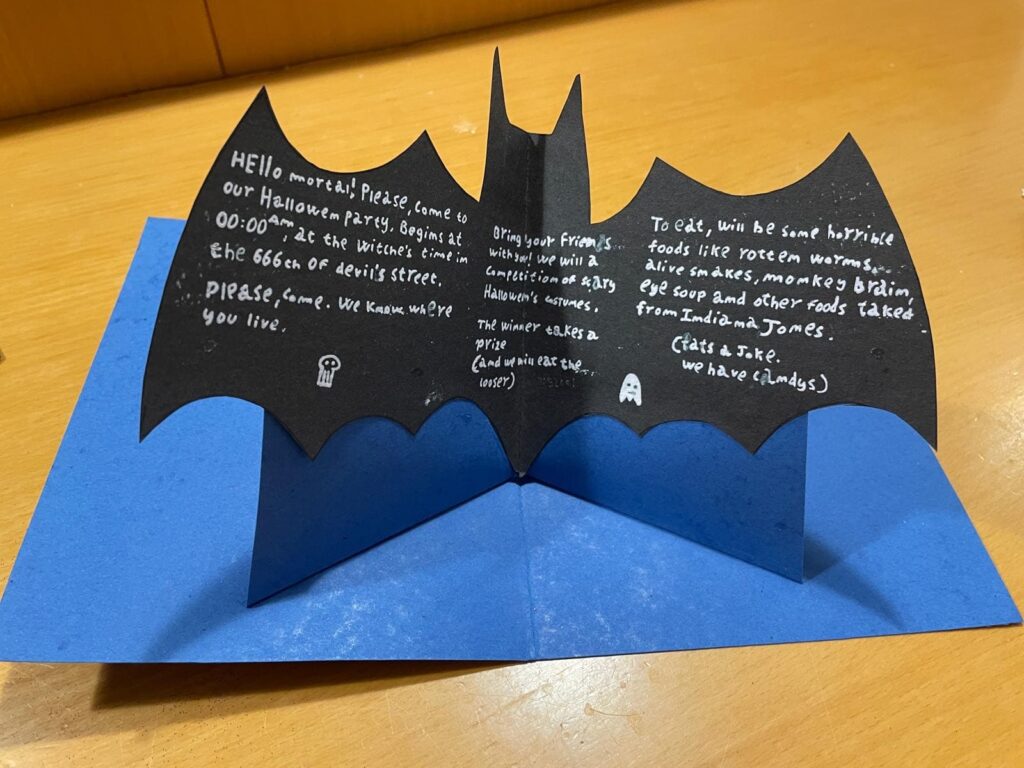 HEllo mortal! Please, come to
our Hallowem party. Begins at
00:00 Am, at the witche's time in
the 666th OF devil's street.
Please, come. We know where
you live.
Bring your friends
with you! We will a
Competition of scary
Hallowem's costumes.
The winner takes a
prize
(and we will eat the...
looser)
To eat, will be some horrible
foods like rottem worms,
alive smakes, momkey braim,
eye soup and other foods taked
from Indiama Jomes.
(tats a Joke.
we have camdys)